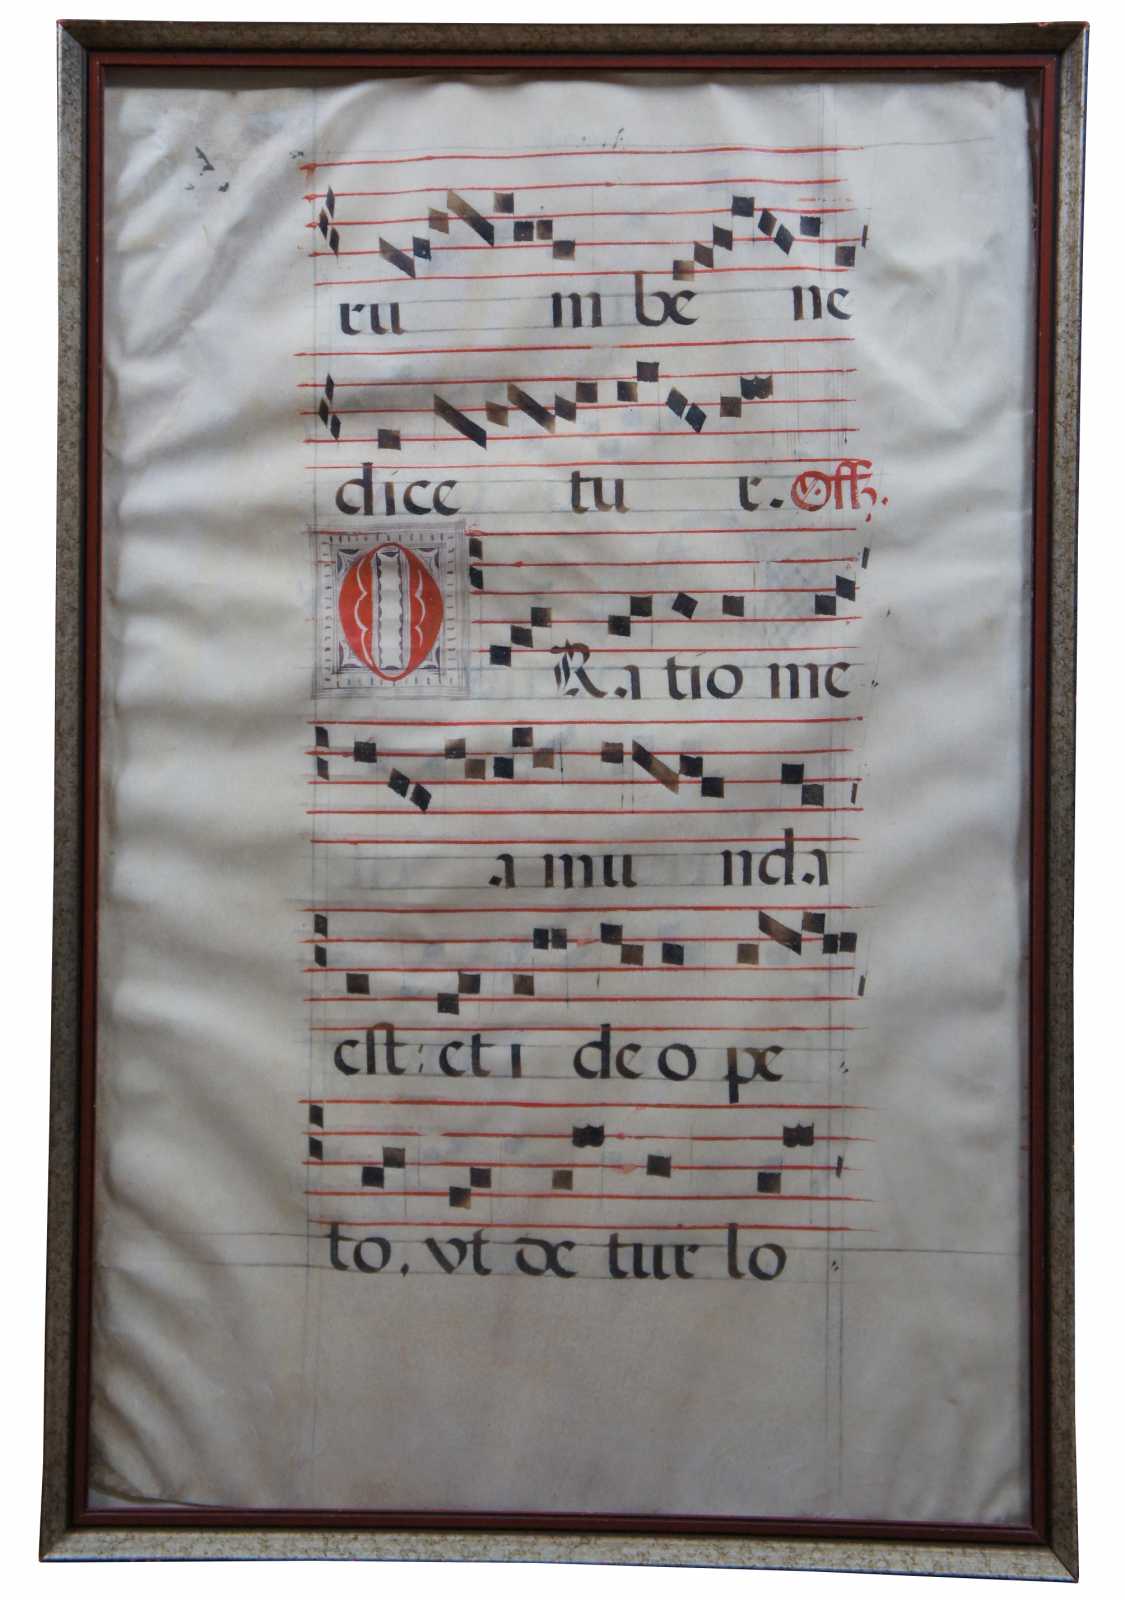 ru m be ne
dice tu r. Offz.
O Ra tio me
a mu nda
est: et i de o pe
to, vt de tur lo